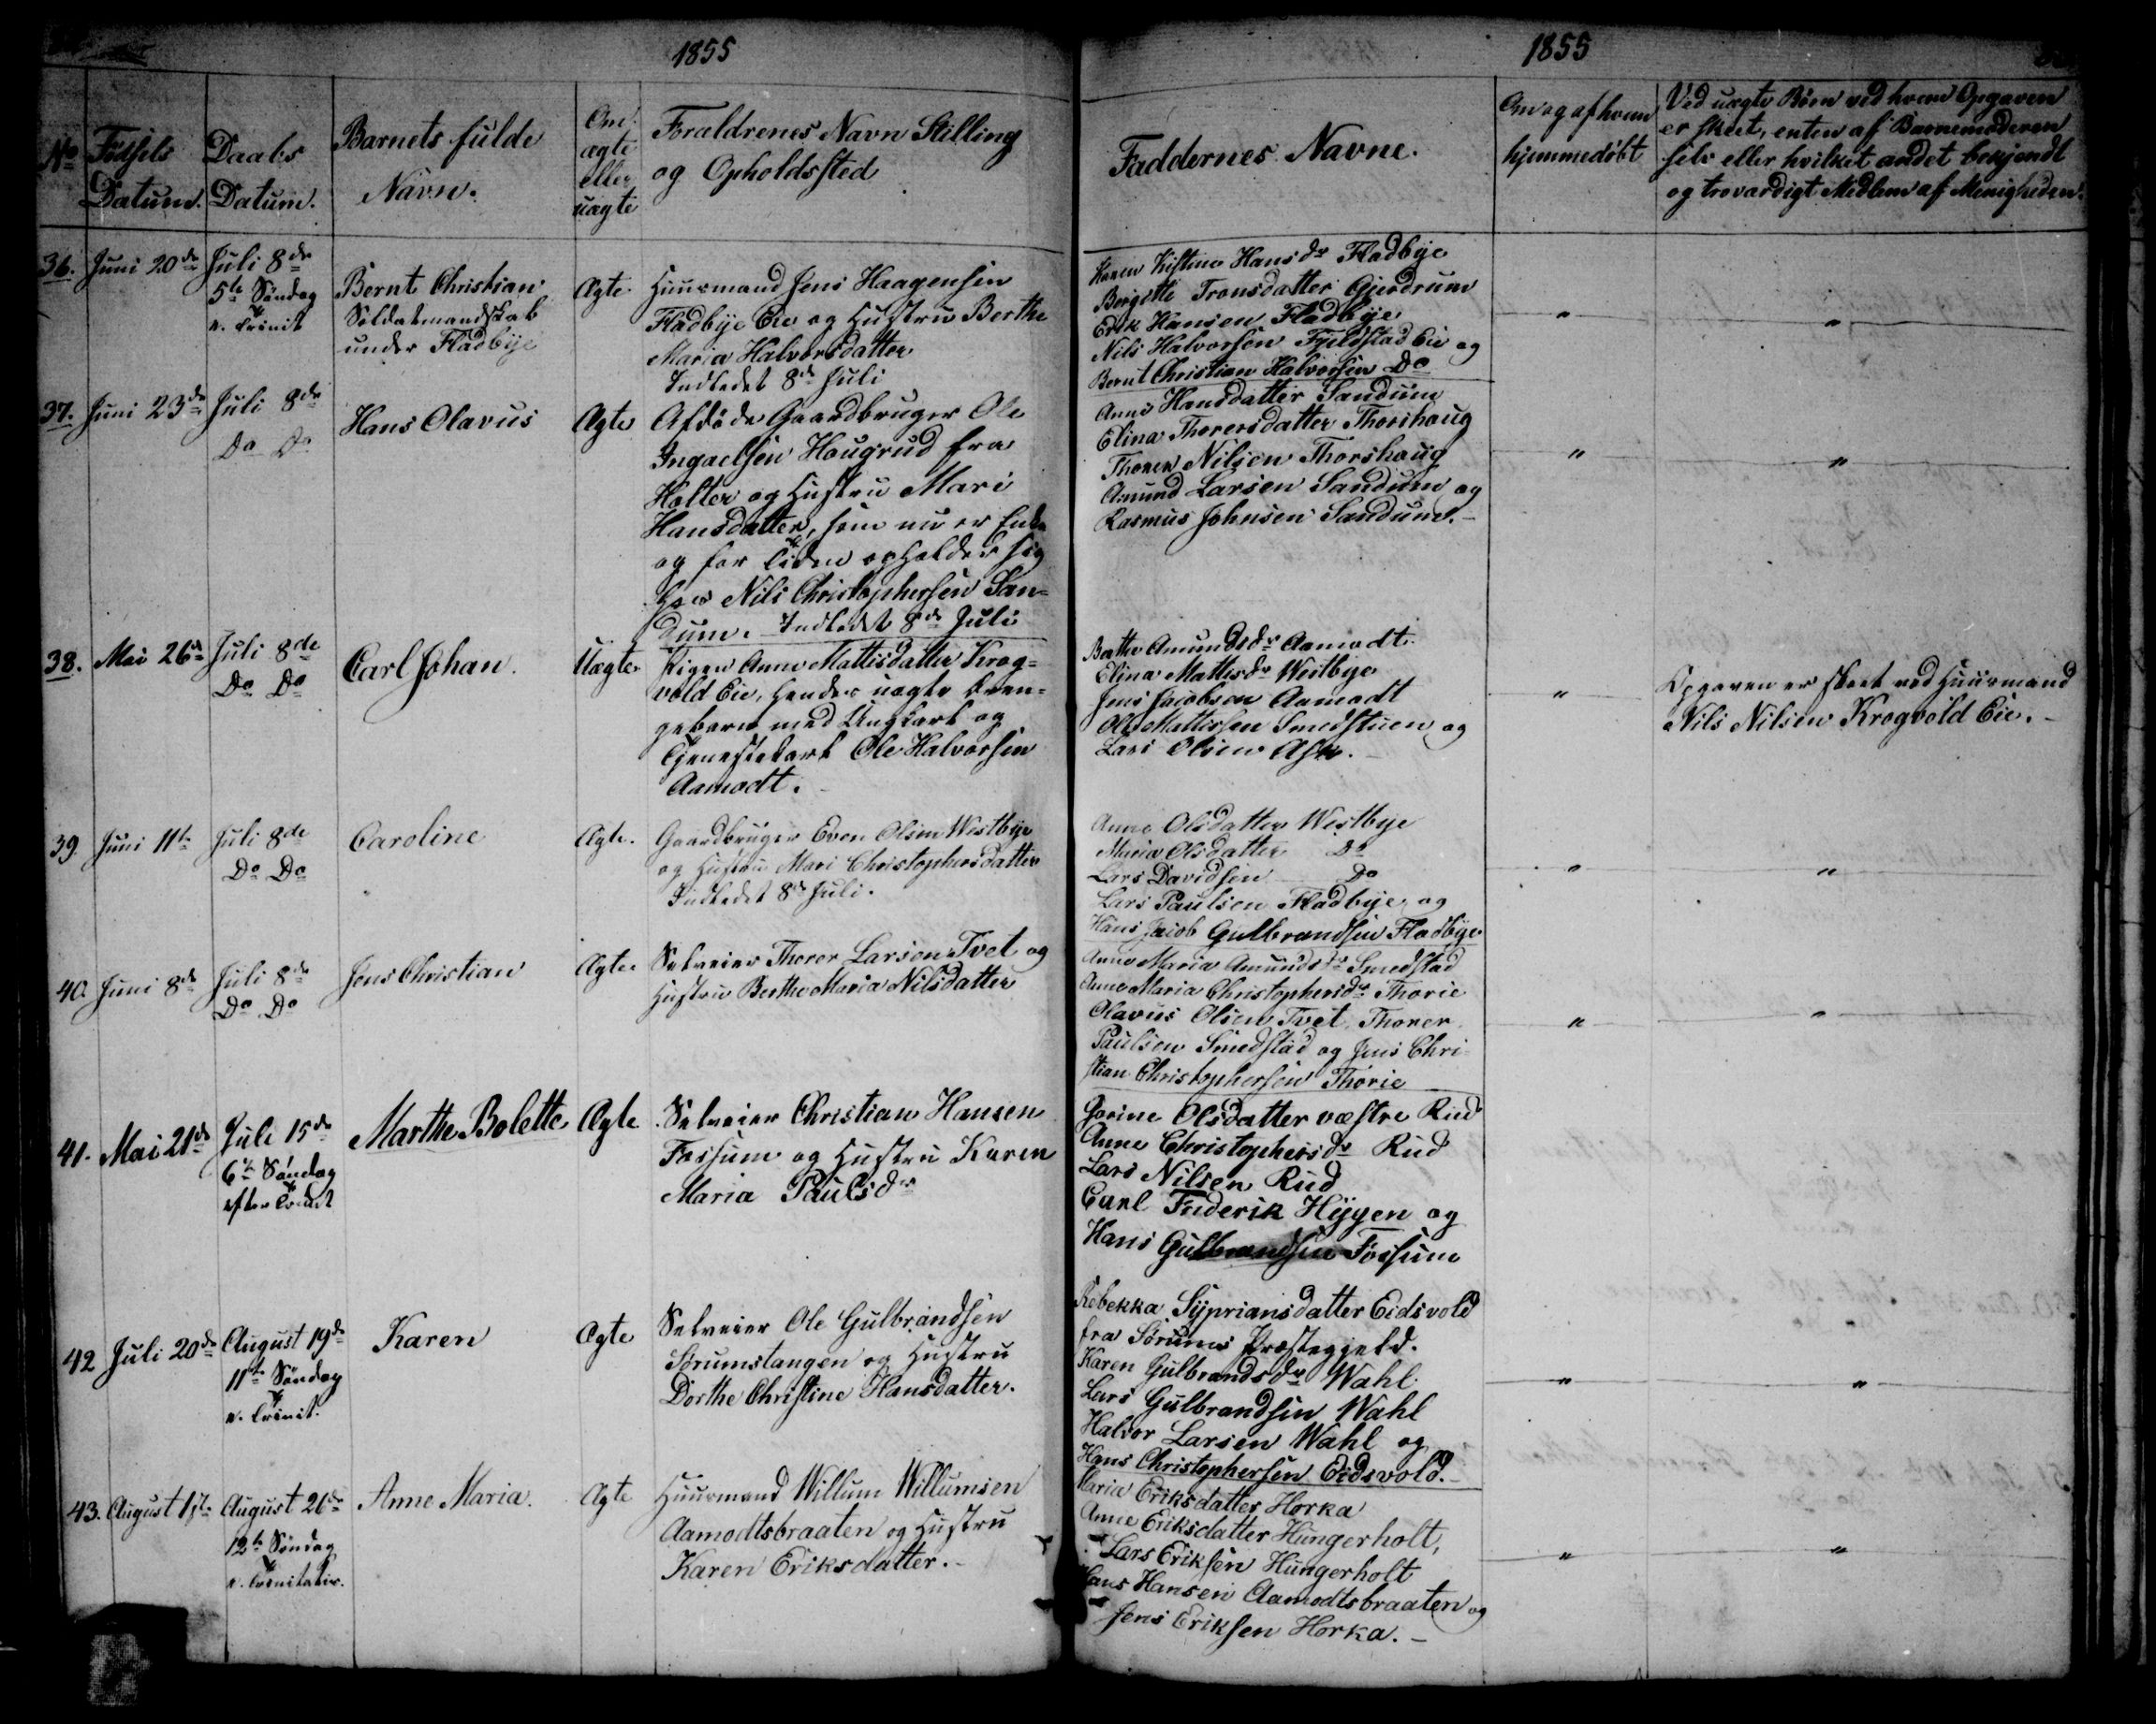 1855
No
Fødsels
Datum.
Daabs
Datum.
Barnets fulde
Navn.
Om
ægte
eller
uægte
Forældrenes Navn Stilling
og Opholdssted
36.
Juni 20de
Juli 8de
5te Søndag
e. Trinit
Bernt Christian
Soldatmandskab
under Fladbye
Ægte
Huusmand Jens Haagensen
Fladbye Eie og Hustru Berthe
Maria Halvorsdatter
Indledet 8de Juli
37.
Juni 23de
Juli 8de
Do Do
Hans Olavus
Ægte
Afdøde Gaardbruger Ole
Ingaelsen Hougrud fra
Holter og Hustru Mari
Hansdatter, som nu er Enke
og for Tiden opholder sig
hos Nils Christophersen San-
dum. Indledet 8de Juli
38.
Mai 26de
Juli 8de
Do Do
Carl Johan.
Uægte
Pigen Anne Mattisdatter Krog-
vold Eie, hendes uægte
med Ungkarl og
Tjenestekarl Ole Halvorsen
Aamodt.
39.
Juni 11te
Juli 8de
Do Do
Caroline
Ægte.
Gaardbruger Even Olsen Westbye
og Hustru Mari Christophersdatter
Indledet 8de Juli.
40.
Juni 8de
Juli 8de
Do Do
Jens Christian
Ægte.
Selveier Thorer Larsen Tvet og
Hustru Berthe Maria Nilsdatter
41.
Mai 21de
Juli 15de
6te Søndag
efter Trinit
Marthe Bolette
Ægte
Selveier Christian Hansen
Fossum og Hustru Karen
Maria Paulsdr
42
Juli 20de
August 19de
11te Søndag
e. Trinit.
Karen
Ægte
Selveier Ole Gulbrandsen
Sørumstangen og Hustru
Dorthe Christine Hansdatter.
43.
August 1ste
August 26de
12te Søndag
e. Trinitatis.
Anne Maria.
Ægte
Huusmand Willum Willumsen
Aamodtsbraaten og Hustru
Karen Eriksdatter.
1855
Faddernes Navne.
Om og af hvem
hjemmedøbt
Ved uægte Børn ved hvem Opgaven
er skeet, enten af Barnemoderen
selv eller hvilket andet bekjendt
og troværdigt Medlem af Menigheden.
Karen Kistine Hansdr Fladbye
Bergitte Tronsdatter Gjerdrum
Erik Hansen Fladbye
Nils Halvorsen Fjeldstad Eie og
Bernt Christian Halvorsen Do
"
"
Anne Hansdatter Sandum
Elina Thorersdatter Thorshaug
Thorer Nilsen Thorshaug
Amund Larsen Sandum og
Rasmus Johnsen Sandum.
"
"
Berthe Amundsdr Aamodt
Elina Mattisdr Westbye
Jens Jacobsen Aamodt
Ole Mattissen Smedstuen og
Lars Olsen Ask.
"
Opgaven er skeet ved Huusmand
Nils Nilsen Krogvold Eie.
Anne Olsdatter Westbye
Maria Olsdatter Do
Lars Davidsen Do
Lars Paulsen Fladbye og
Hans Jacob Gulbrandsen Fladbye
"
"
Anne Maria Amundsdr Smedstad
Anne Maria Christophersdr Thorie
Olavus Olsen Tvet, Thorer
Paulsen Smedstad og Jens Chri
stian Christophersen Thorie
"
"
Gorine Olsdatter vestre Rud
Anne Christophersdr Rud
Lars Nilsen Rud
Carl Frederik Hyggen og
Hans Gulbrandsen Fossum
Rebekka Syprian­sdatter Eidsvold
fra Sørums Præstegjeld.
Karen Gulbrandsdr Wahl
Lars Gulbrandsen Wahl
Halvor Larsen Wahl og
Hans Christophersen Eidsvold.
"
"
Maria Eriksdatter Horka
Anne Eriksdatter Hungerholt,
Lars Eriksen Hungerholt
Hans Hansen Aamodtsbraaten og
Jens Eriksen Horka.
"
"